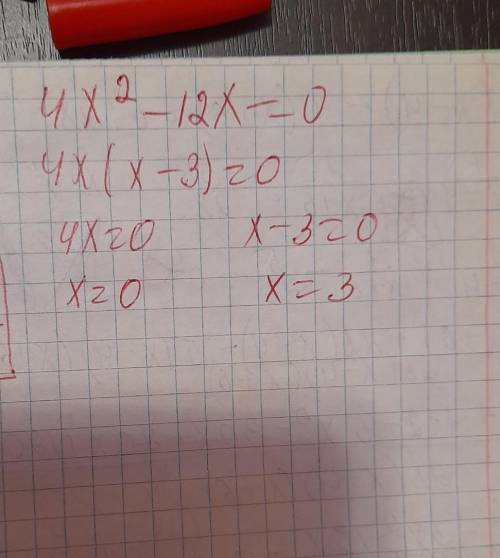 4x² - 12x = 0
4x(x - 3) = 0
4x = 0 x - 3 = 0
x = 0 x = 3